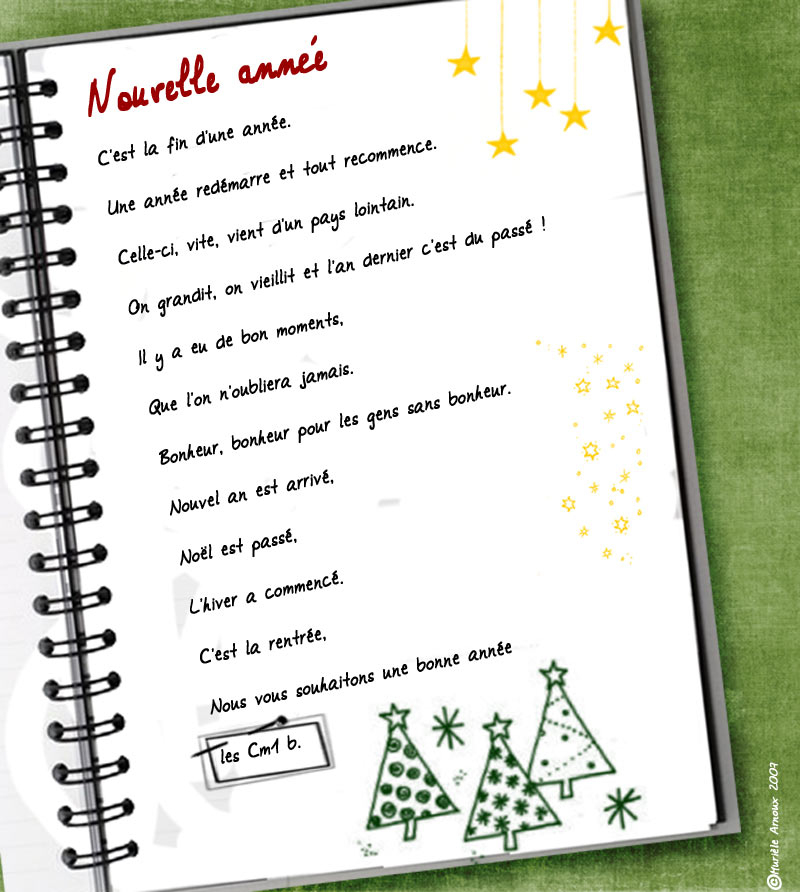 Nouvelle anneé
C'est la fin d'une année.
Une année redémarre et tout recommence.
Celle-ci, vite, vient d'un pays lointain.
On grandit, on vieillit et l'an dernier c'est du passé !
Il y a eu de bon moments,
Que l'on n'oubliera jamais.
Bonheur, bonheur pour les gens sans bonheur.
Nouvel an est arrivé,
Noël est passé,
L'hiver a commencé.
C'est la rentrée,
Nous vous souhaitons une bonne année
les Cm1 b.
©Murièle Arnoux 2007